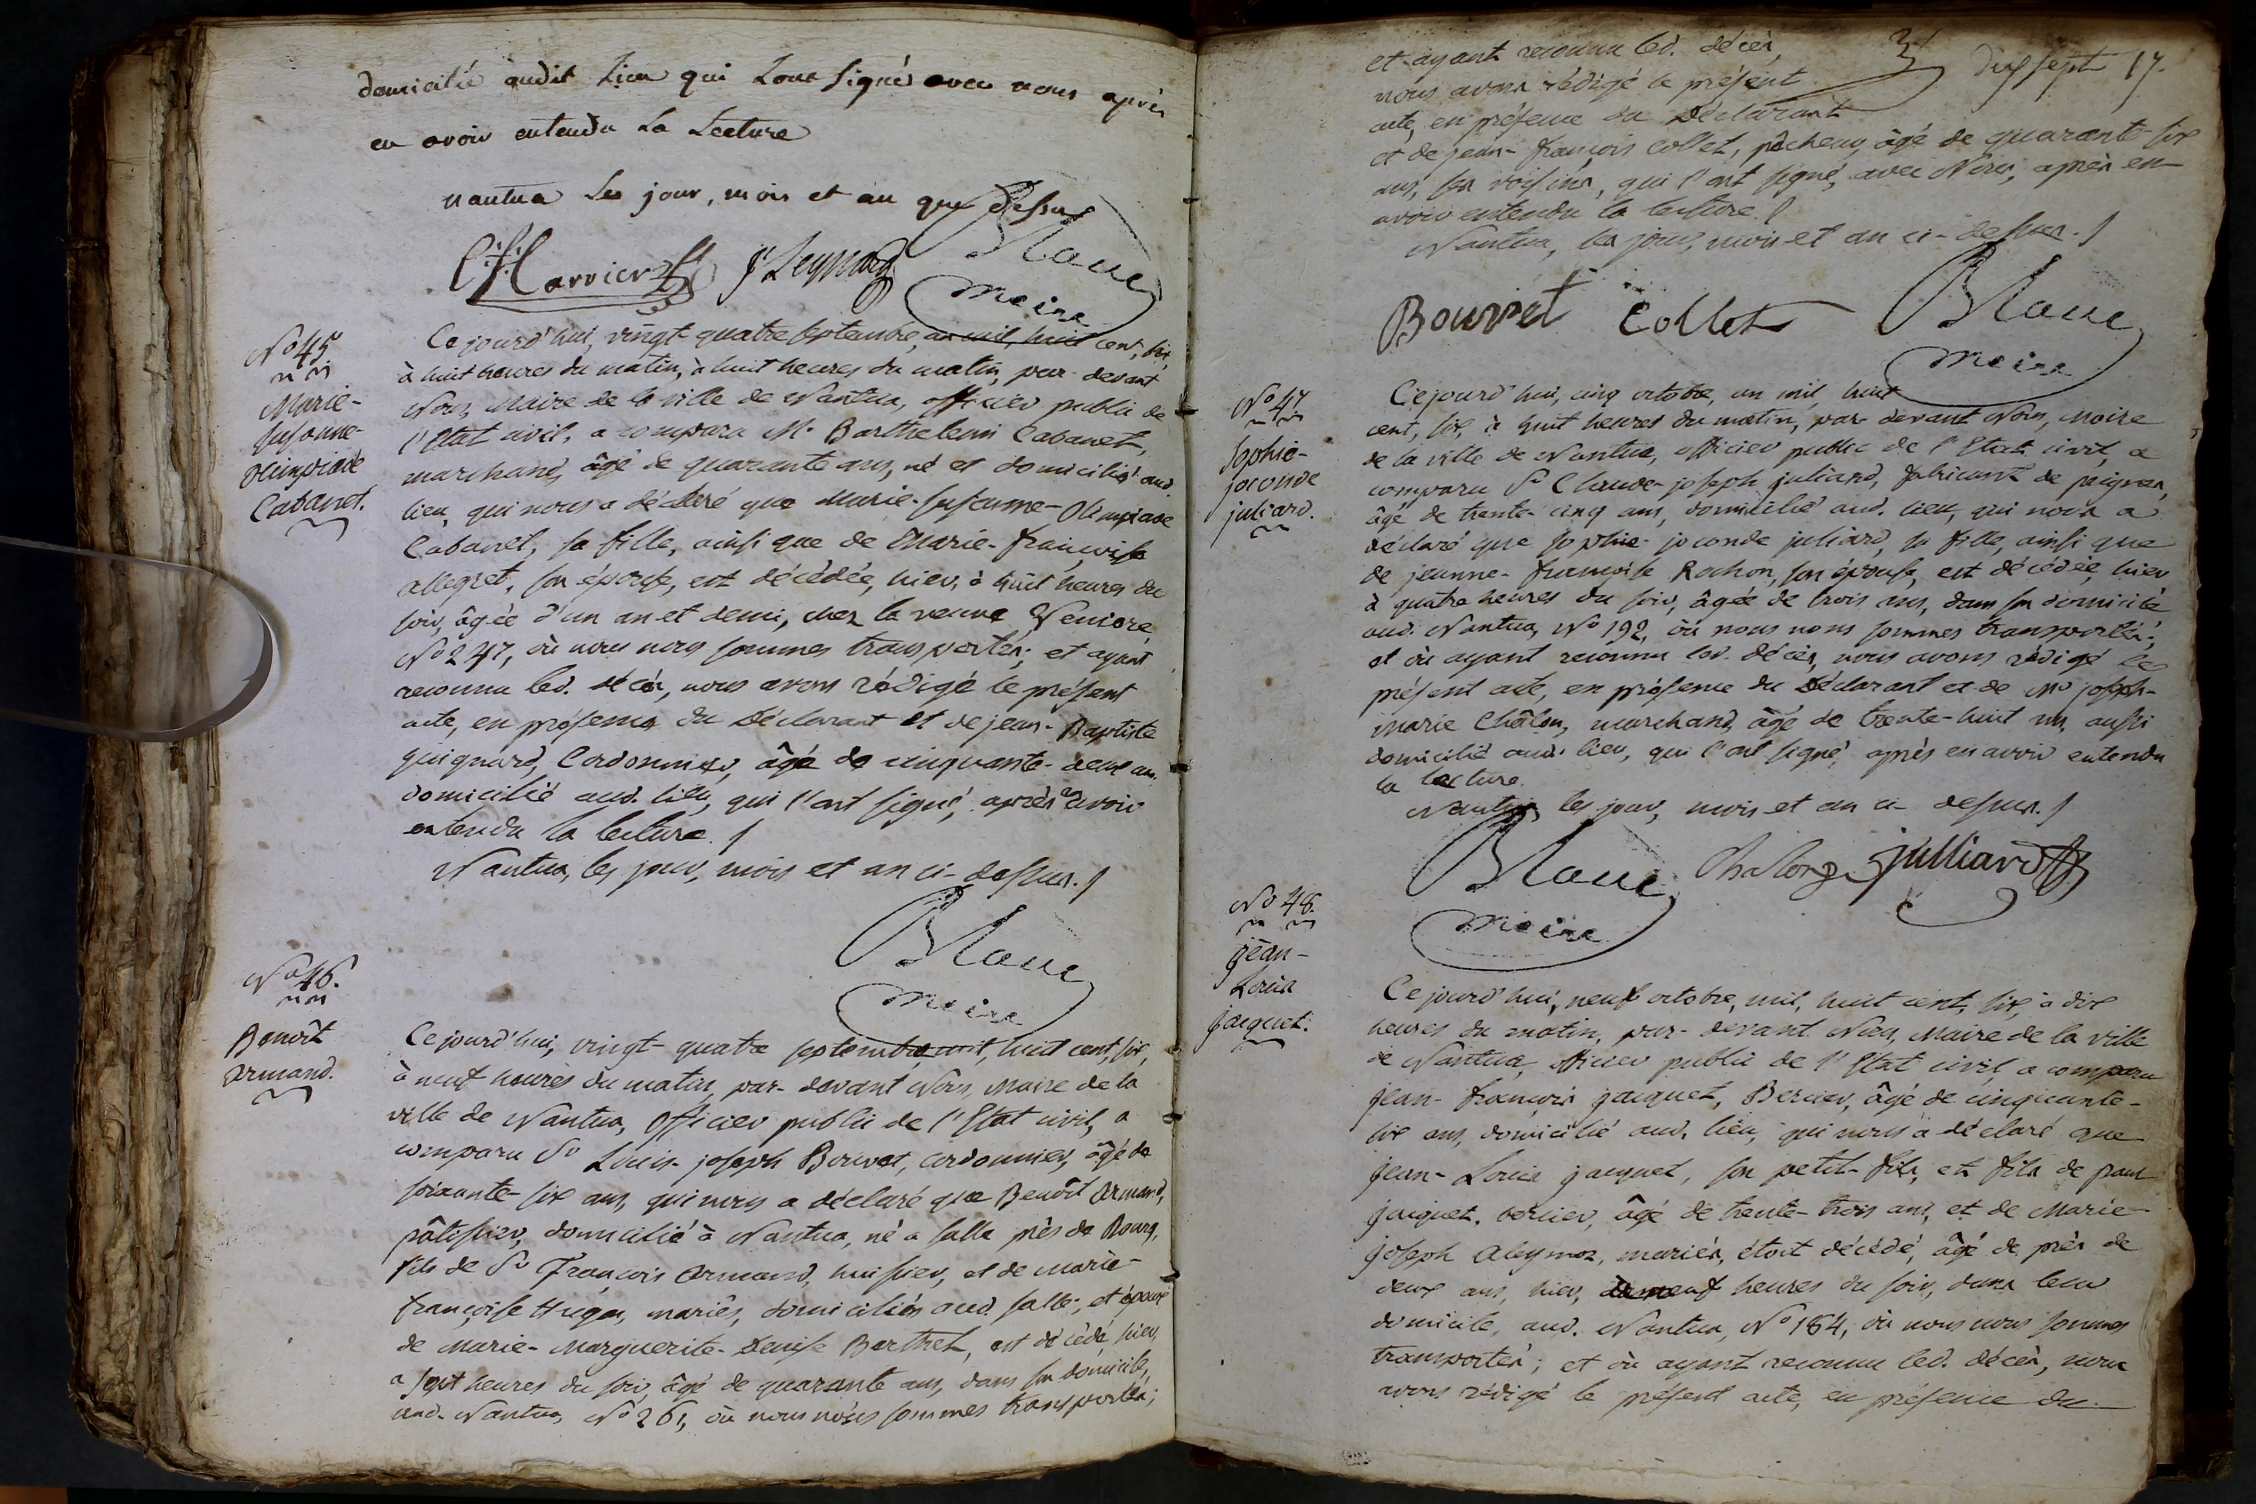 domicilié audit Lieu qui L'ont Signé avec nous après
en avoir entendu La Lecture
nantua Les jour, mois et an que dessus
Blanc
maire
No 45
Marie-
Susanne-
Olimpiade
Cabanet.
Ce jourd'hui, vingt quatre septembre, an mil, huit cent, six,
à huit heures du matin, à huit heures du matin, par-devant
Nous, Maire de la ville de Nantua, officier public de
l'Etat civil, a comparu Mr Barthelemi Cabanet,
marchand, âgé de quarante ans, né et domicilié aud.
lieu, qui nous a déclaré que Marie-Susanne-Olimpiade
Cabanet, sa fille, ainsi que de Marie-françoise
allegret, son épouse, est décédée, hier, à huit heures du
soir, âgée d'un an et demi, chez la veuve
No 247, où nous nous sommes transportés; et ayant
reconnu led. décès, nous avons rédigé le présent
acte, en présence du Déclarant et de jean-Baptiste
guignard, Cordonnier, âgé de cinquante-deux ans
domicilié aud. lieu, qui l'ont signé, après en avoir
entendu la lecture. /
Nantua, les jour, mois et an ci-dessus. /
Blanc
maire
No 46.
Benoît
armand.
Ce jourd'hui, vingt-quatre septembre, mil, huit cent, six,
à neuf heures du matin, par-devant Nous, Maire de la
ville de Nantua, officier public de l'Etat civil, a
comparu Sr Louis-joseph Bouvet, cordonnier, âgé de
soixante-six ans, qui nous a déclaré que Benoît armand,
pâtissier, domicilié à Nantua, né à salle près de Bourg,
fils de Sr François armand, huissier, et de marie-
françoise mariés, domiciliés aud. salle; et époux
de Marie-Marguerite-Denise Barthet, est décédé, hier,
à sept heures du soir, âgé de quarante ans, dans son domicile,
aud. Nantua, No 261, où nous nous sommes transportés;
dix sept 17.
et ayant reconnu led. décès,
nous avons rédigé le présent
acte, en présence du Déclarant
et de jean-françois Collet, pêcheur, âgé de quarante-six
ans, ses voisins, qui l'ont signé, avec Nous, après en
avoir entendu la lecture. /
Nantua, les jour, mois et an ci-dessus. /
Bouvet Collet Blanc
maire
No 47.
Sophie-
joconde
juliard.
Ce jourd'hui, cinq octobre, an mil, huit
cent, six, à huit heures du matin, par-devant Nous, Maire
de la ville de Nantua, officier public de l'Etat civil, a
comparu Sr Claude-joseph juliard, fabricant de peignes,
âgé de trente-cinq ans, domicilié aud. lieu, qui nous a
déclaré que sophie-joconde juliard, sa fille, ainsi que
de jeanne-françoise Rochon, son épouse, est décédée, hier
à quatre heures du soir, âgée de trois ans, dans son domicile
aud. Nantua, No 192, où nous nous sommes transportés;
et où ayant reconnu led. décès, nous avons rédigé le
présent acte, en présence du Déclarant et de Mr joseph-
marie Châlon, marchand, âgé de trente-huit ans, aussi
domicilié aud. lieu, qui l'ont signé, après en avoir entendu
la lecture.
Nantua, les jour, mois et an ci-dessus. /
Blanc julliard
maire
No 48.
jean-
Louis
jacquet.
Ce jourd'hui, neuf octobre, mil, huit cent, six, à dix
heures du matin, par-devant Nous, Maire de la ville
de Nantua, officier public de l'Etat civil, a comparu
jean-françois jacquet, Bercier, âgé de cinquante-
six ans, domicilié aud. lieu, qui nous a déclaré que
jean-Louis jacquet, son petit-fils, et fils de
jacquet, bercier, âgé de trente-trois ans, et de Marie-
joseph mariés, étoit décédé, âgé de près de
deux ans, hier, neuf heures du soir, dans leur
domicile, aud. Nantua, No 184, où nous nous sommes
transportés; et où ayant reconnu led. décès, nous
avons rédigé le présent acte, en présence du